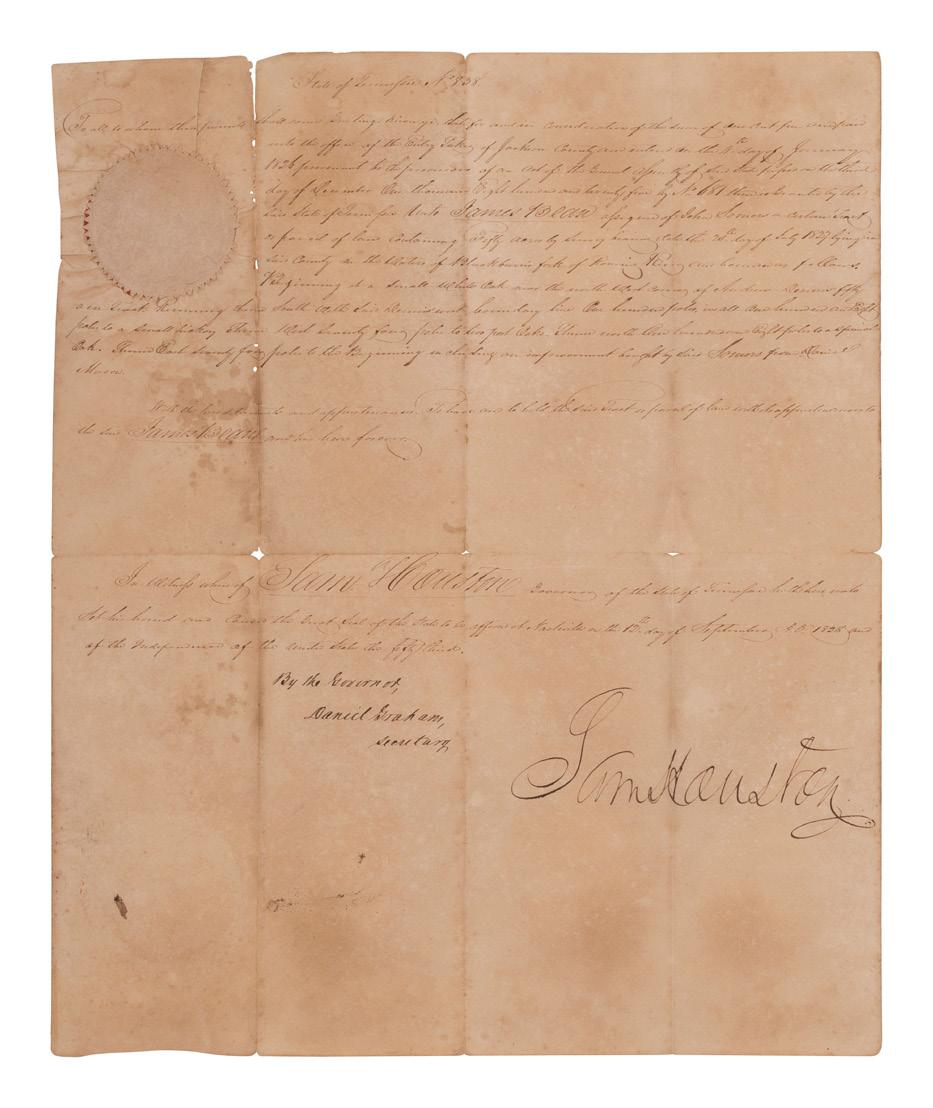 State of Tennessee No 838
To all to whom these presents shall come Greeting: Know ye, that for and in consideration of the sum of one cent per acre paid
into the office of the Entry Taker of Jackson County and entered on the 4th day of January
1826 pursuant to the provisions of an Act of the General Assembly of said State passed on the third
day of December One thousand Eight hundred and twenty five by No 651 there is Granted by the
said State of Tennessee Unto James Bean assignee of John Somers a Certain Tract
or parcel of land Containing Fifty acres by Survey bearing date the day of July 1827 lying in
said County on the Waters of Blackburns fork of Roaring River and bounded as follows.
Beginning at a small White Oak near the north West corner of Andrew fifty
acre Tract Running thence South With said west boundary line One hundred poles, in all One hundred and Eight
poles to a small hickory Thence West Seventy four poles to two post Oaks. Thence north One hundred and Eight poles to a
Oak. Thence East Seventy four poles to the Beginning including an improvement bought by said Somers from Daniel
With the hereditaments and appurtenances. To have and to hold the said Tract or parcel of land with its appurtenances to
the said James Bean and his heirs forever.
In Witness whereof Sam. Houston Governor of the State of Tennessee hath hereunto
Set his hand and Caused the Great Seal of the State to be affixed at Nashville on the 13th day of September A.D. 1828 and
of the Independence of the United States the fifty third.
By the Governor,
Daniel Graham,
Secretary
Sam Houston